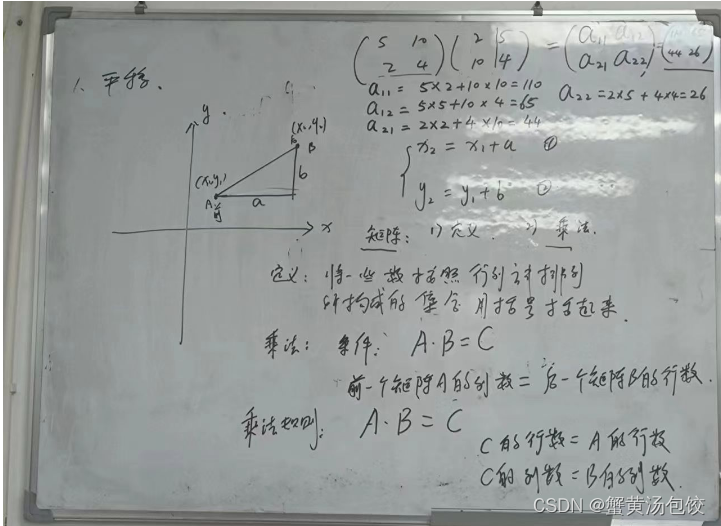 1. 平移.
( 5 10
2 4 ) ( 2 5
10 4 ) = ( a11 a12
a21 a22 ) = ( 44 26 )
a11 = 5×2+10×10=110
a12 = 5×5+10×4=65
a21 = 2×2+4×10=44
a22=2×5+4×4=26
{ x2 = x1+a ①
y2 = y1+b ②
y
(x2,y2)
B
(x1,y1)
A
前
a
b
x
矩阵: 1) 定义. 2) 乘法.
定义: 将一些数按照行列方式排列
所构成的集合用括号括起来.
乘法: 条件: A·B=C
前一个矩阵A的列数=后一个矩阵B的行数.
乘法规则: A·B=C
C的行数=A的行数
C的列数=B的列数.
CSDN @蟹黄汤包饺